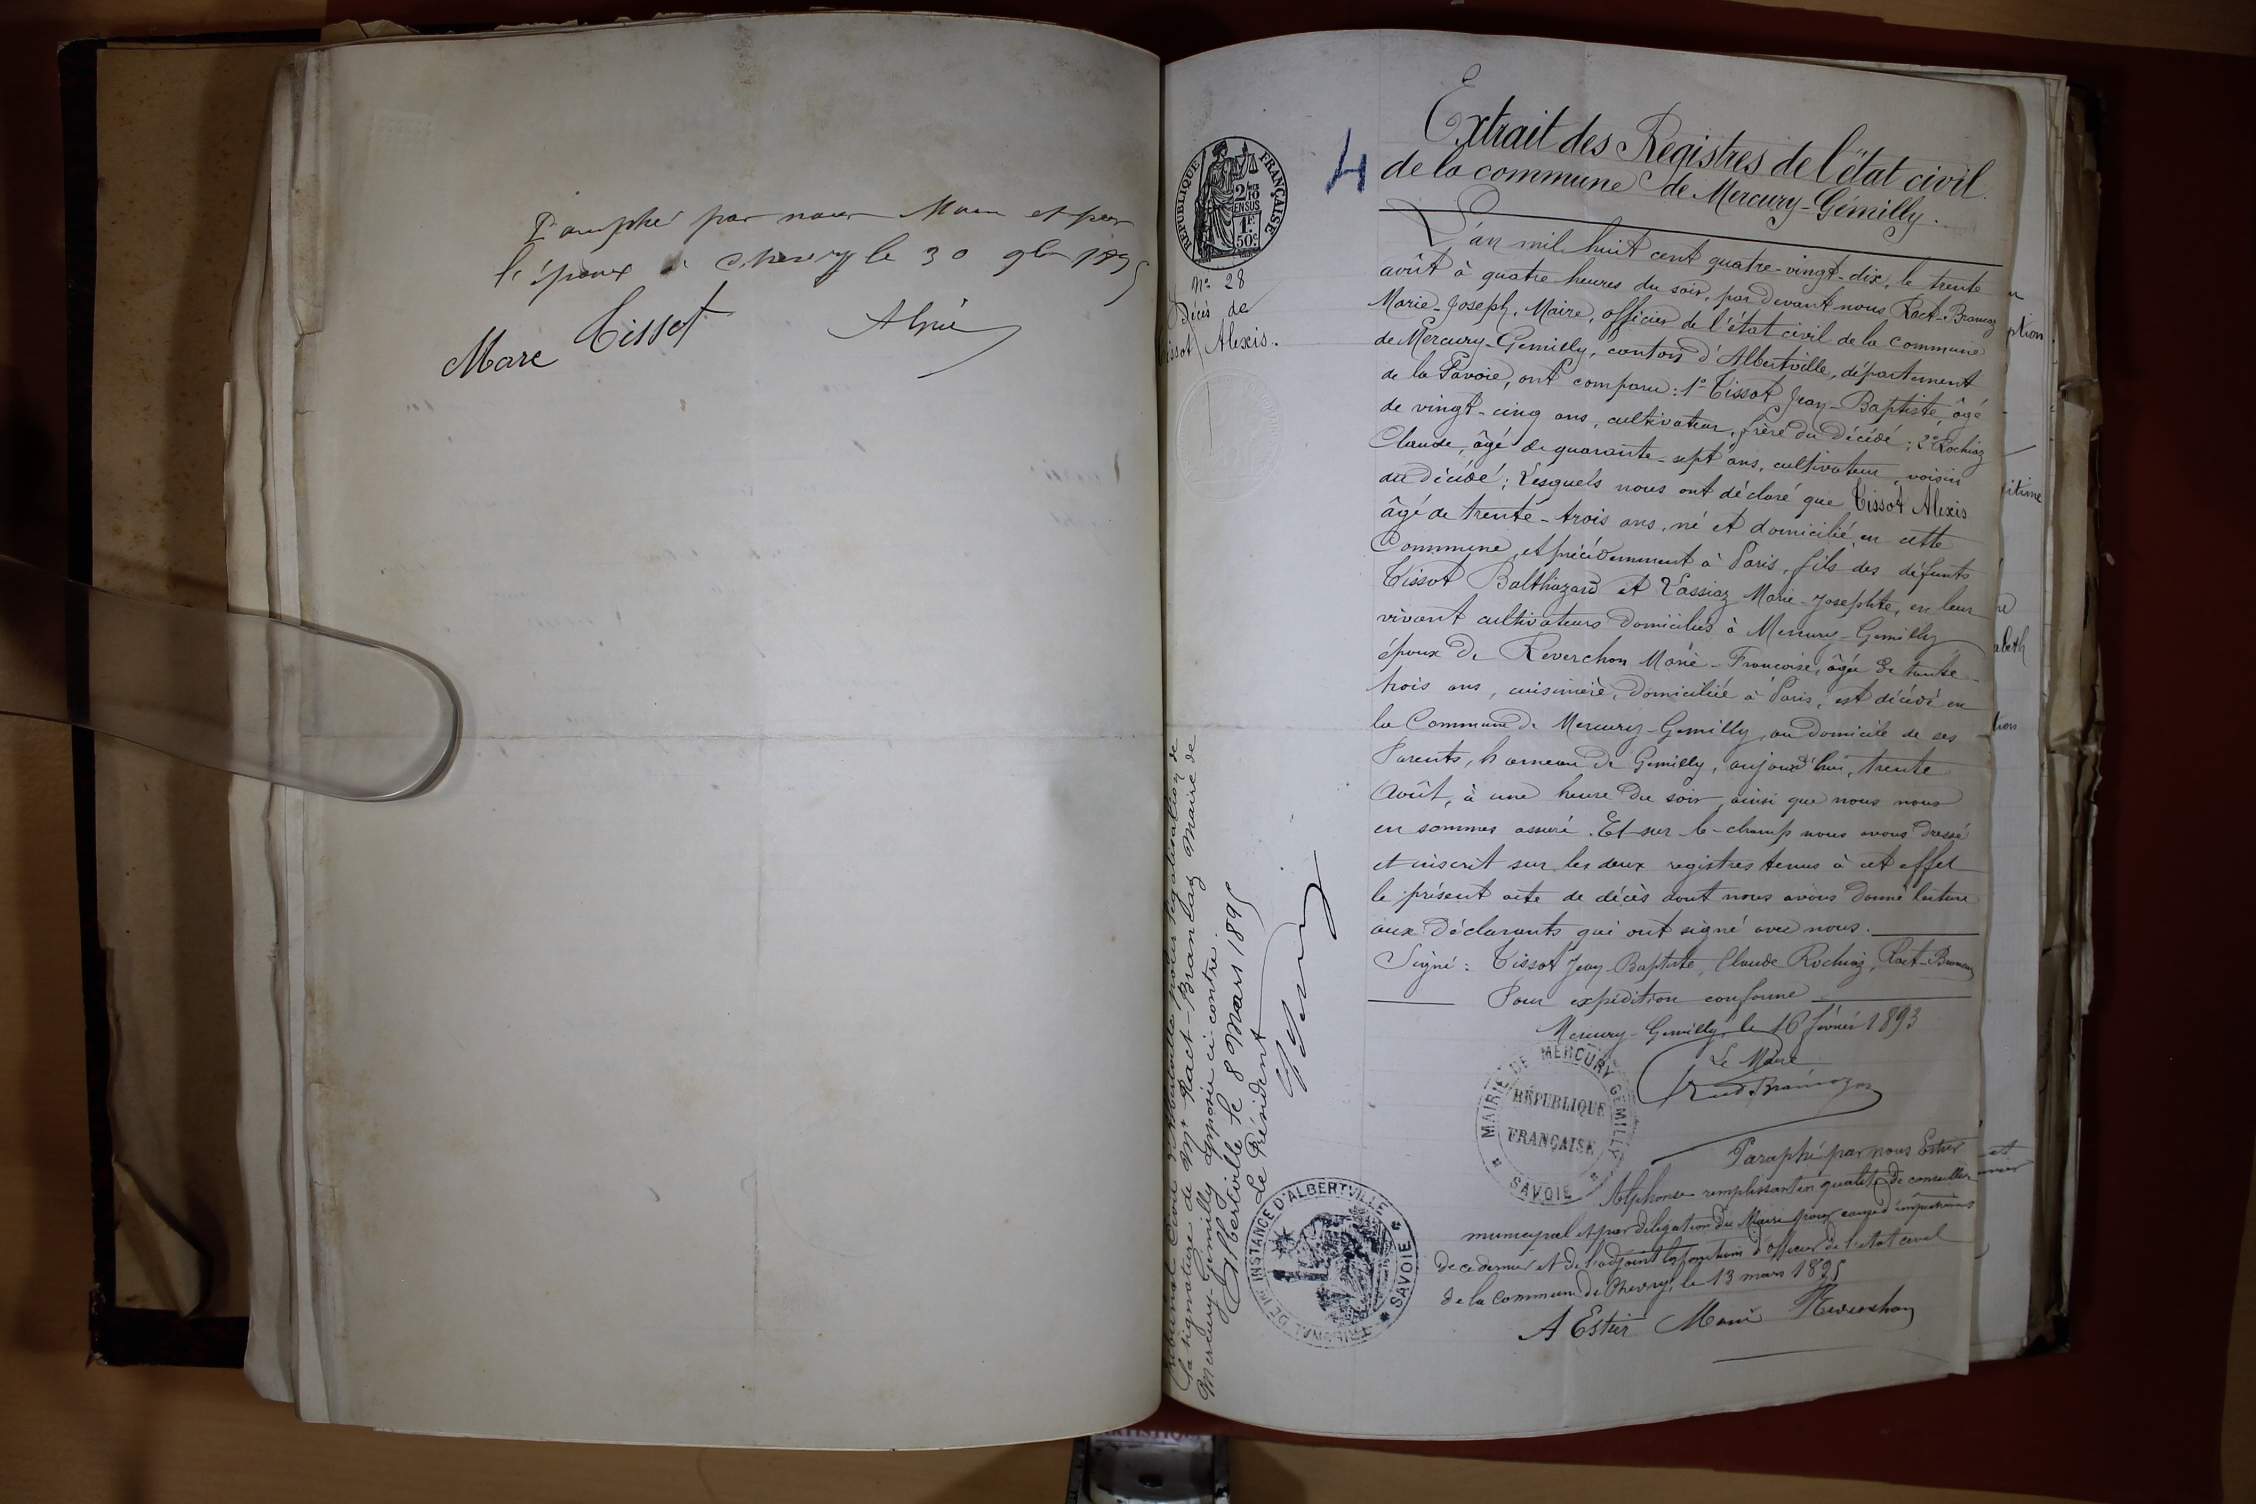 Paraphé par nous Maire et par
l'époux à Chevry le 30 9bre 1895
Marc Tissot
4
Extrait des Registres de l'état civil
de la commune de Mercury-Gémilly.
RÉPUBLIQUE FRANÇAISE
2/10 EN SUS
1F.
50c
No 28
Décès de
Tissot Alexis.
L'an mil huit cent quatre-vingt-dix, le trente
août à quatre heures du soir, par devant nous Ract-Brancaz
Marie-Joseph, Maire, officier de l'état civil de la commune
de Mercury-Gemilly, canton d'Albertville, département
de la Savoie, ont comparu : 1o Tissot Jean-Baptiste, âgé
de vingt-cinq ans, cultivateur, frère du décédé ; 2o Rochiaz
Claude, âgé de quarante-sept ans, cultivateur, voisin
du décédé ; Lesquels nous ont déclaré que Tissot Alexis
âgé de trente-trois ans, né et domicilié en cette
Commune, et précédemment à Paris, fils des défunts
Tissot Balthazard et Vassiaz Marie-Josephte, en leur
vivant cultivateurs domiciliés à Mercury-Gemilly
époux de Reverchon Marie-Françoise, âgée de trente-
trois ans, cuisinière, domiciliée à Paris, est décédé en
la Commune de Mercury-Gemilly, au domicile de ses
Parents, hameau de Gemilly, aujourd'hui, trente
Août, à une heure du soir, ainsi que nous nous
en sommes assuré. Et sur-le-champ nous avons dressé
et inscrit sur les deux registres tenus à cet effet
le présent acte de décès dont nous avons donné lecture
aux Déclarants qui ont signé avec nous.
Signé : Tissot Jean-Baptiste, Claude Rochiaz, Ract-Brancaz
Pour expédition conforme
Mercury-Gemilly, le 16 février 1893
Le Maire
MAIRIE DE MERCURY GEMILLY
RÉPUBLIQUE
FRANÇAISE
SAVOIE
Paraphé par nous Estier
Alphonse remplissant en qualité de conseiller
municipal et par délégation du Maire pour cause d'empêchement
de ce dernier et de l'adjoint les fonctions d'officier de l'état civil
de la commune de Chevry, le 13 mars 1895
A Estier Marie Reverchon
Tribunal Civil d'Albertville pour légalisation de
la signature de Mr Ract-Brancaz Maire de
Mercury-Gemilly apposée ci-contre.
Albertville le 8 Mars 1895
Le Président
TRIBUNAL DE 1re INSTANCE D'ALBERTVILLE
SAVOIE